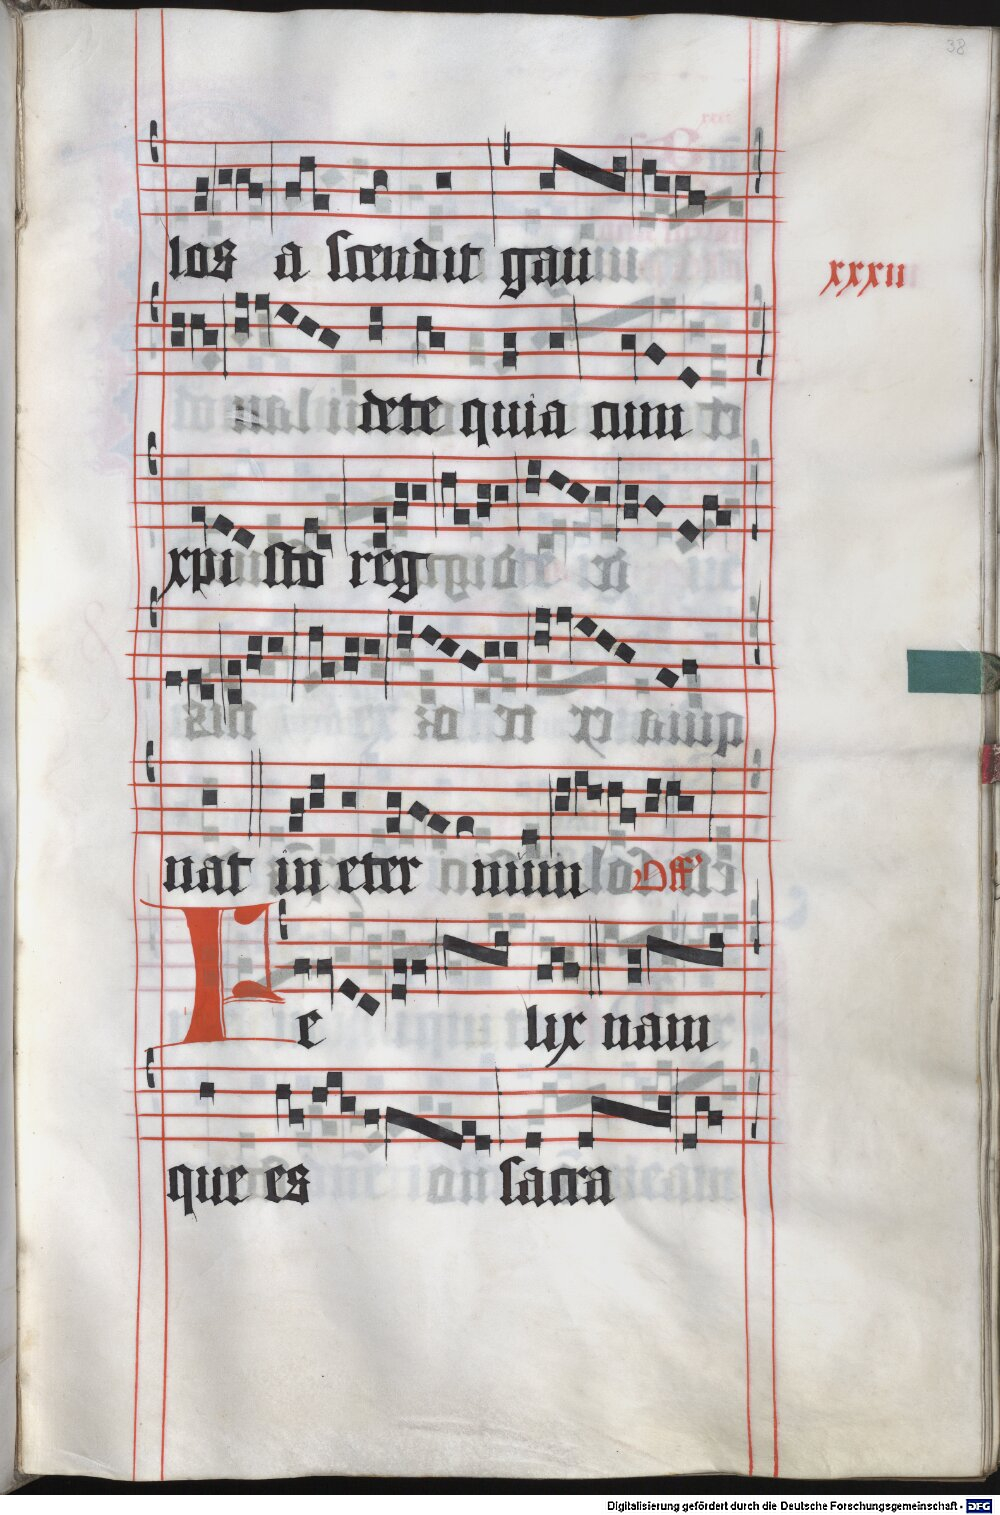 38
los a scendit gau
xxxii
dete quia cum
xpi sto reg
nat in eter num Off'
Fe lix nam
que es sacra
Digitalisierung gefördert durch die Deutsche Forschungsgemeinschaft - DFG